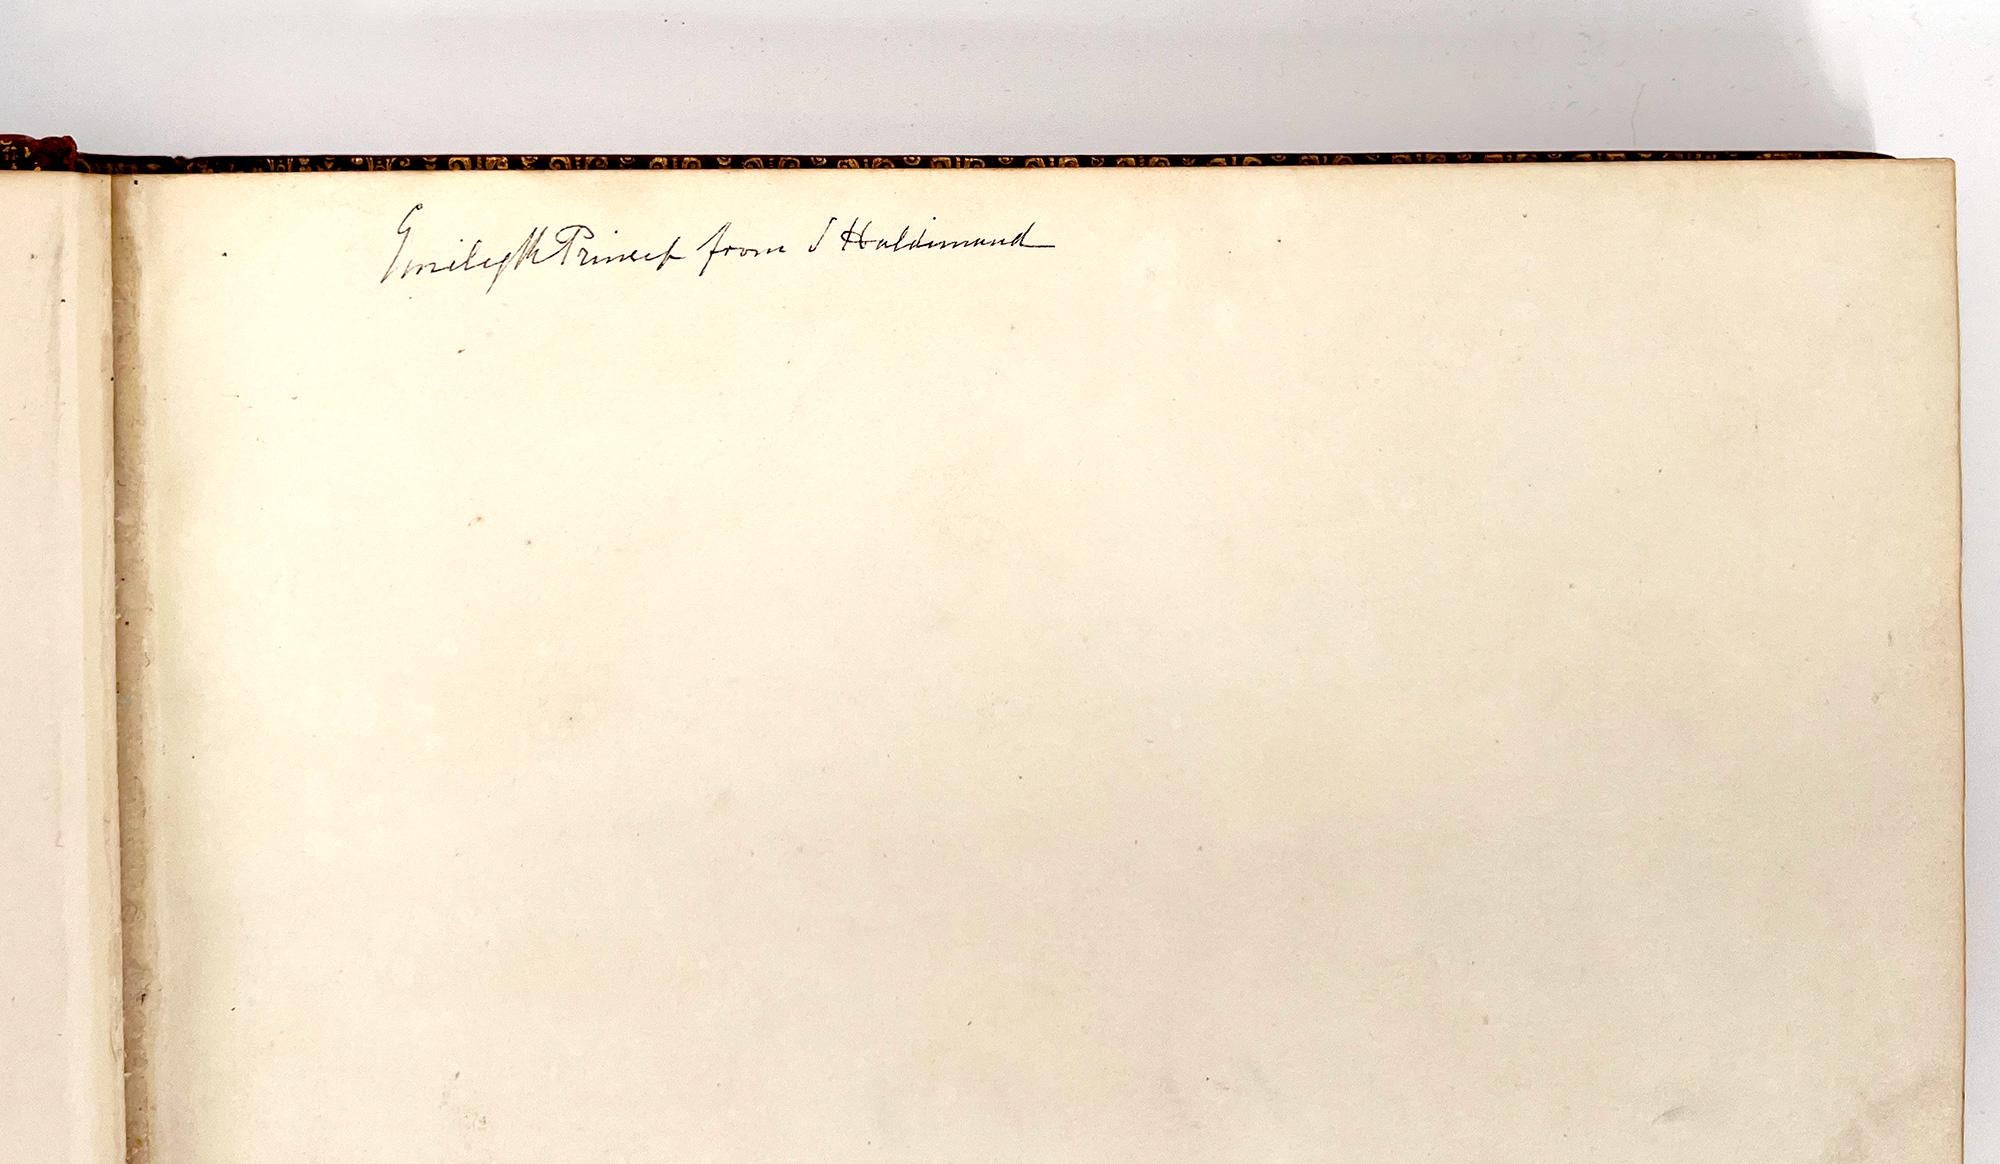 Emily M Prinsep from S Haldimand